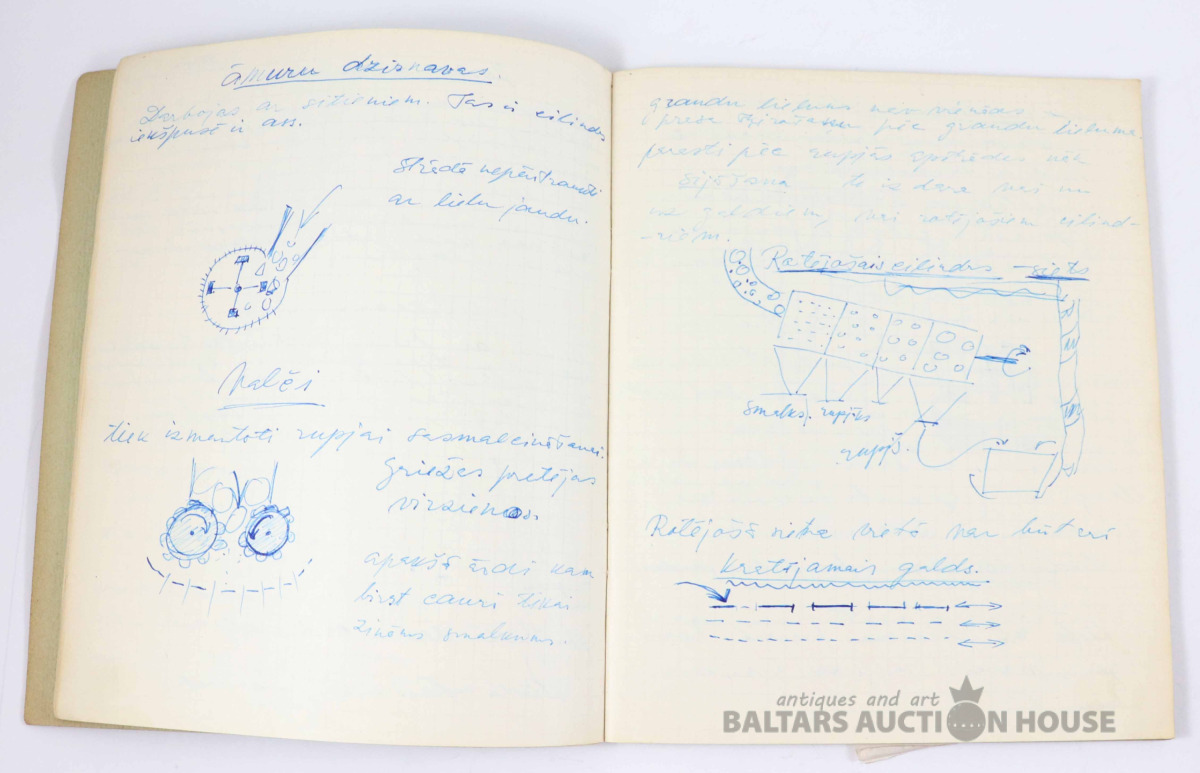 āmuru dzirnavas.
Darbojas ar sitieniem. Tas ir cilindrs
iekšpusē ir ass.
strādā nepārtraukti
ar lielu jaudu.
Valči
tiek izmantoti rupjai sasmalcināšanai.
Griežas pretējas
virzienos.
apakšā ārdi kam
birst cauri tikai
zināms smalkums.
graudu lielums nav vienāds
pēc graudu lieluma
parasti pēc rupjās apstrādes nāk
sijāšana to iz dara vai nu
uz galdiem, vai rotējošiem cilind-
-riem.
Rotējošais cilindrs - siets
smalks. rupjks
rupjš.
Rotējošā sieta vietā var būt arī
kratāmais galds.
antiques and art
BALTARS AUCTION HOUSE